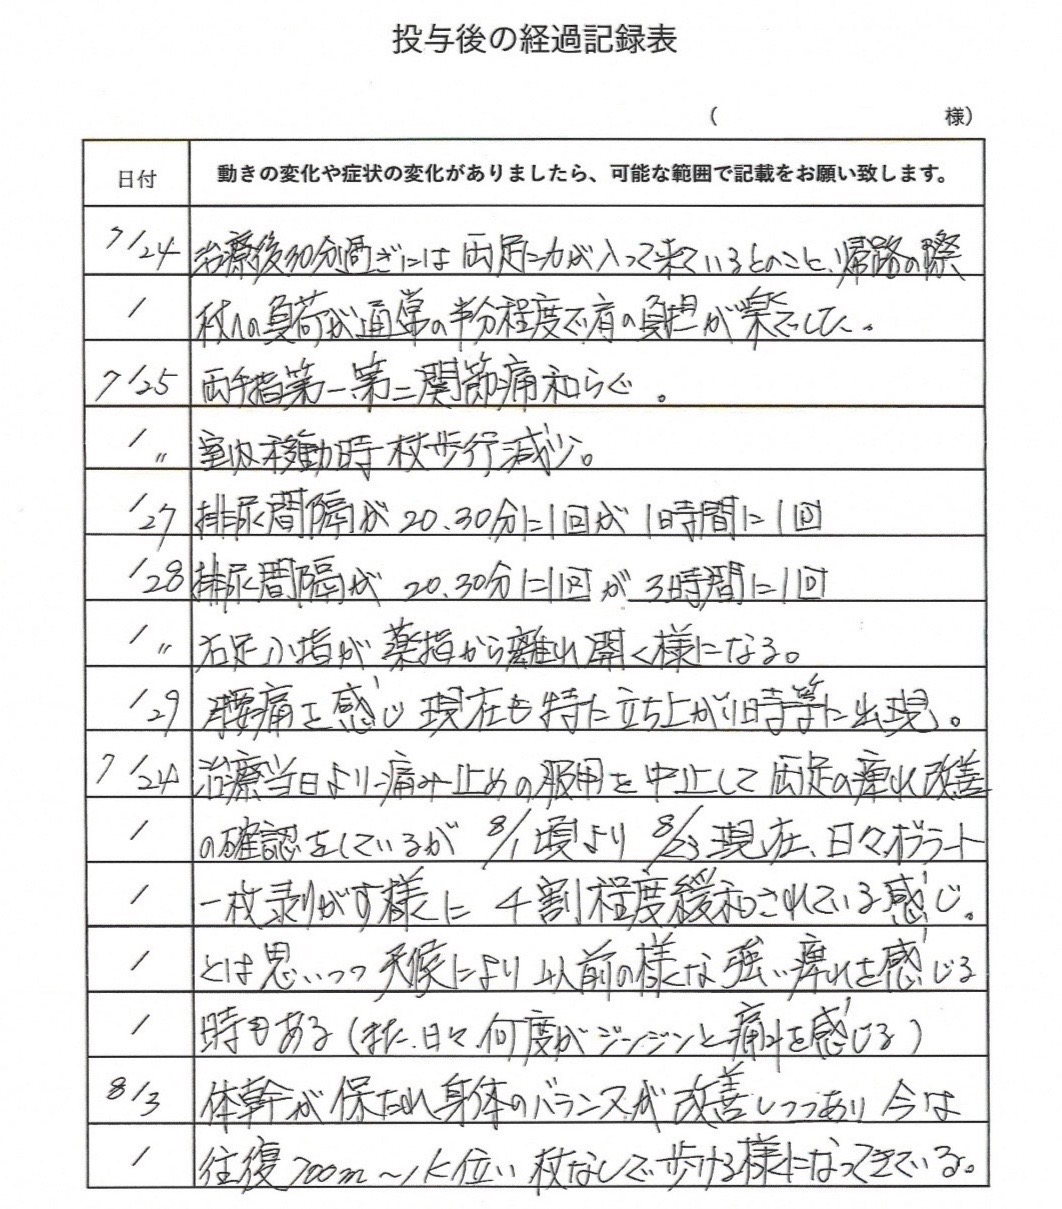 投与後の経過記録表
（　　　　　　　　　　様）
日付　動きの変化や症状の変化がありましたら、可能な範囲で記載をお願い致します。
7/24　治療後30分過ぎには両足に力が入って来ているとのこと、帰路の際
/　杖への負荷が通常の半分程度で肩の負担が楽でした。
7/25　両手指第一第二関節痛和らぐ。
/〃　室内移動時杖歩行減少。
/27　排尿間隔が20.30分に1回が1時間に1回
/28　排尿間隔が20.30分に1回が3時間に1回
/〃　右足小指が薬指から離れ開く様になる。
/29　腰痛を感じ現在も特に立ち上がり時等に出現。
7/24　治療当日より痛み止めの服用を中止して両足の痺れ改善
/　の確認をしているが8/1頃より8/23現在、日々オブラート
/　一枚剥がす様に4割程度緩和されている感じ。
/　とは思いつつ天候により以前の様な強い痺れを感じる
/　時もある(また、日々何度かジンジンと痛みを感じる)
8/3　体幹が保たれ身体のバランスが改善しつつあり今は
/　往復700m～1K位い杖なしで歩ける様になってきている。